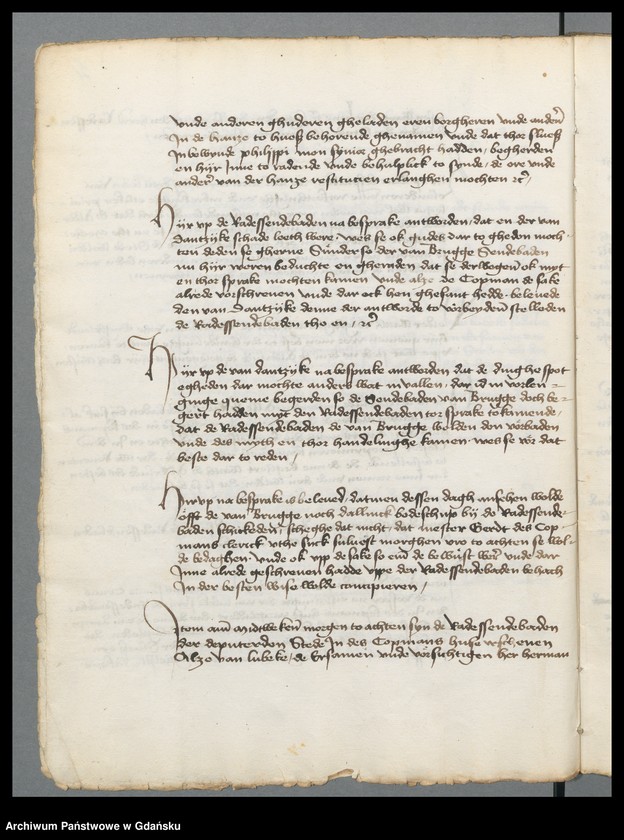 vnde anderen ghuderen gheladen eren borgheren vnde anderen
In de hanze to hueß behorende ghenamen vnde dat thor Slueß
philippi mon synice ghebracht hadden, begherden
en hijr Inne to radende vnde behulplick to synde, de ore vnde
ander van der hanze restitucien erlanghen mochten etc,
Hijr vp de Radessendebaden na besprake antworden, dat en der van
Dantzike schade leeth were, wes se ok gudes dar to ghedon moch-
ten deden se gherne Sunder so der van Brugge Sendebaden
nu hijr weren beduchte en gheraden dat se der wegen ok myt
en thor sprake mochten kamen vnde alze de Copman de sake
alrede vorschreuen vnde dar ock hen ghesant hedde beleuede
den van Dantzike denne der antworde to vorbeyden stelleden
de Radessendebaden tho en, etc
Hijr vp de van dantzike na besprake antworden dat de dinghe spot
egheden dar mochte anders wat in vallen, dar id in vorlen-
ginge queme begerden so de Sendebaden van Brugge doch be-
gert hadden myt den Radessendebaden tor sprake to kamende,
dat de Radessendebaden de van Brugge wolden don vorbaden
vnde des myth en thor handelinghe kamen wes se vor dat
beste dar to reden,
Hir vp na besprake is beleuet, datmen dessen dagh ansehen wolde
offt de van Brugge noch dallinck bodeschup bij de Radessende-
baden schickeden, scheghe dat nicht, dat mester Gerdt des Cop-
mans clerck vthe sick sulues morghen vro to achten se wol-
de bedaghen vnde ok vp de sake so en de bewijst wer vnde dar
Inne alrede geschreuen hadde vppe der Radessendebaden behach
In der besten wise wolde concipieren,
Item am andweken morgen to achten syn de Radessendebaden
der deputerden Stede In des Copmans huse erschenen
Alze van lubeke, de Ersamen vnde vorsichtigen her herman
Archiwum Państwowe w Gdańsku